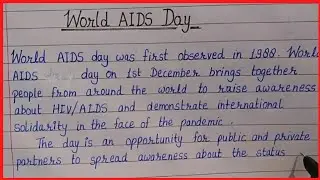 World AIDS Day
World AIDS day was first observed in 1988. World
AIDS day on 1st December brings together
people from around the world to raise awareness
about HIV/AIDS and demonstrate international
solidarity in the face of the pandemic.
The day is an opportunity for public and private
partners to spread awareness about the status